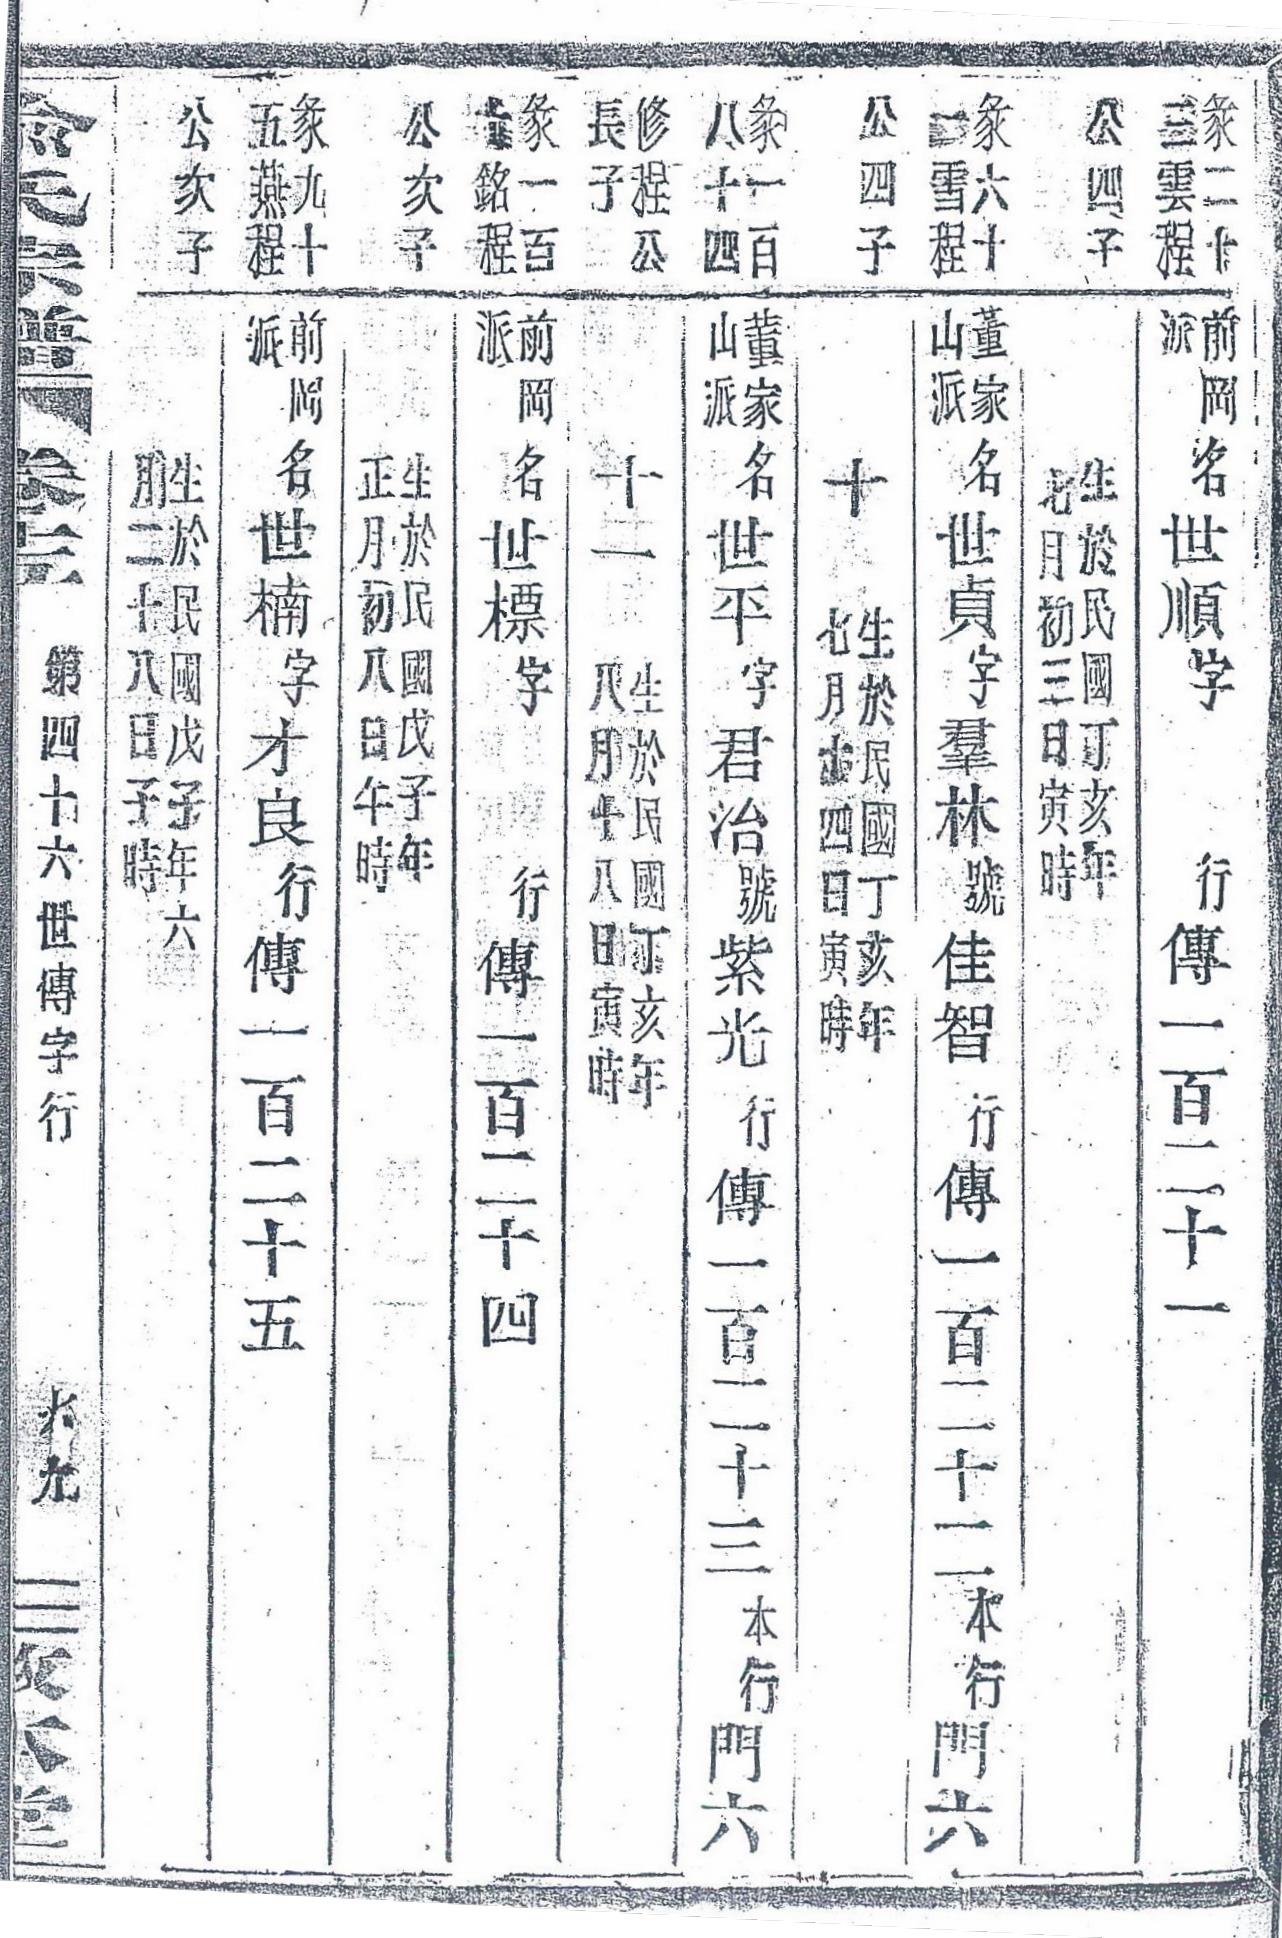 彖二十三雲程公四子
前岡派 名世順字 行傳一百二十一
生於民國丁亥年七月初三日寅時
彖六十一雪程公四子
董家山派 名世貞字羣林號佳智行傳一百二十二本行門六十
生於民國丁亥年七月 四日寅時
彖一百八十四修程公長子
董家山派 名世平字君治號紫光行傳一百二十三本行門六十二
生於民國丁亥年八月十八日寅時
彖一百 銘程公次子
前岡派 名世標字 行傳一百二十四
生於民國戊子年正月初八日午時
彖九十五燕程公次子
前岡派 名世楠字才良行傳一百二十五
生於民國戊子年六月二十八日子時
俞氏宗譜 卷 第四十六世傳字行 九 敦本堂